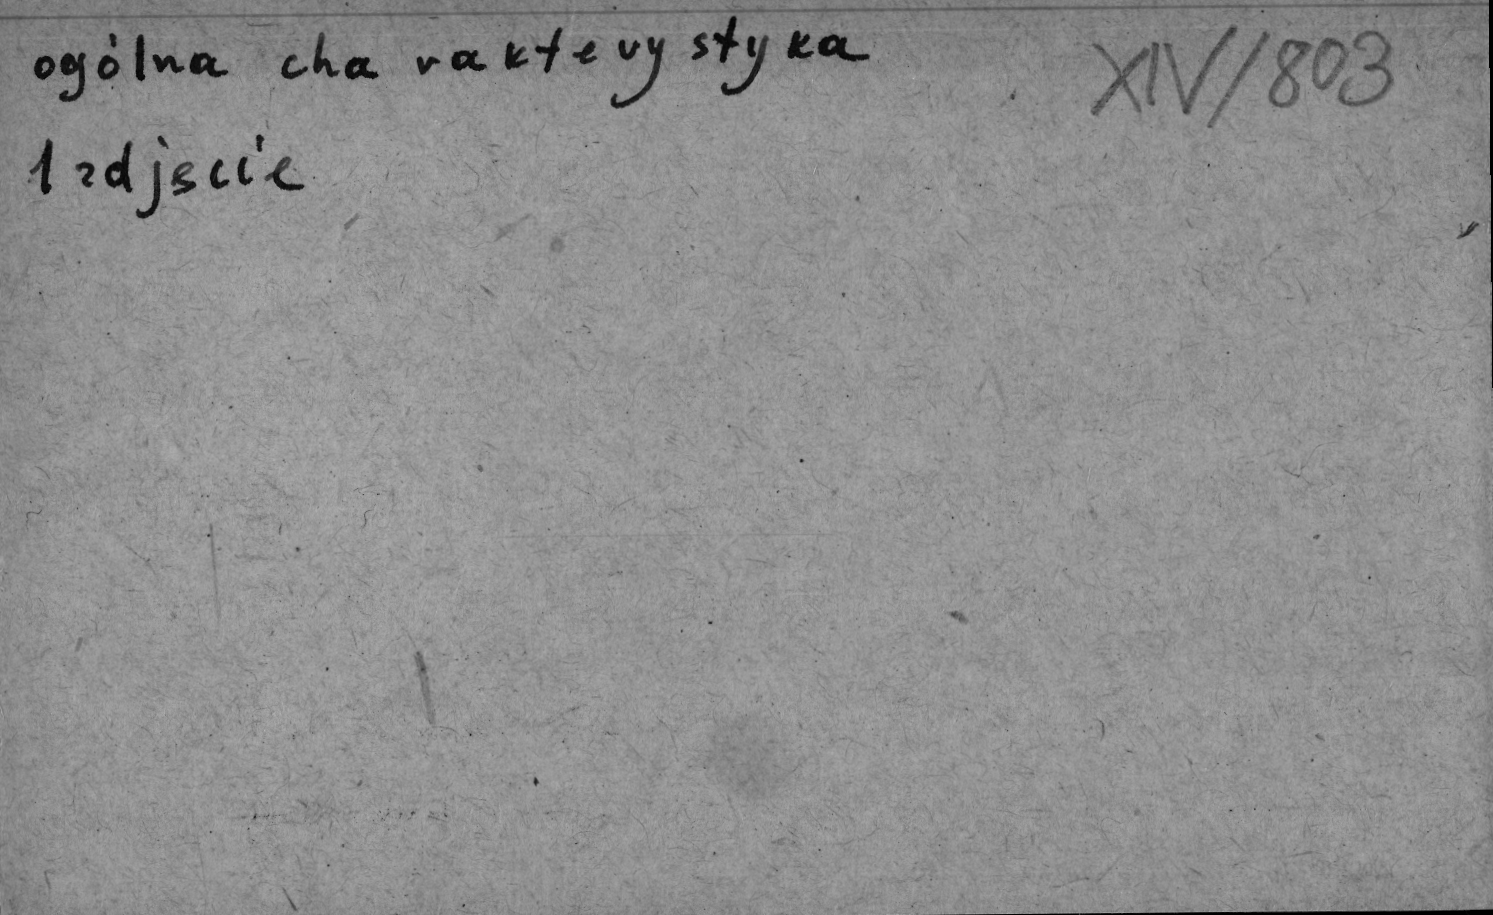 ogólna charakterystyka
XIV/803
1 zdjęcie